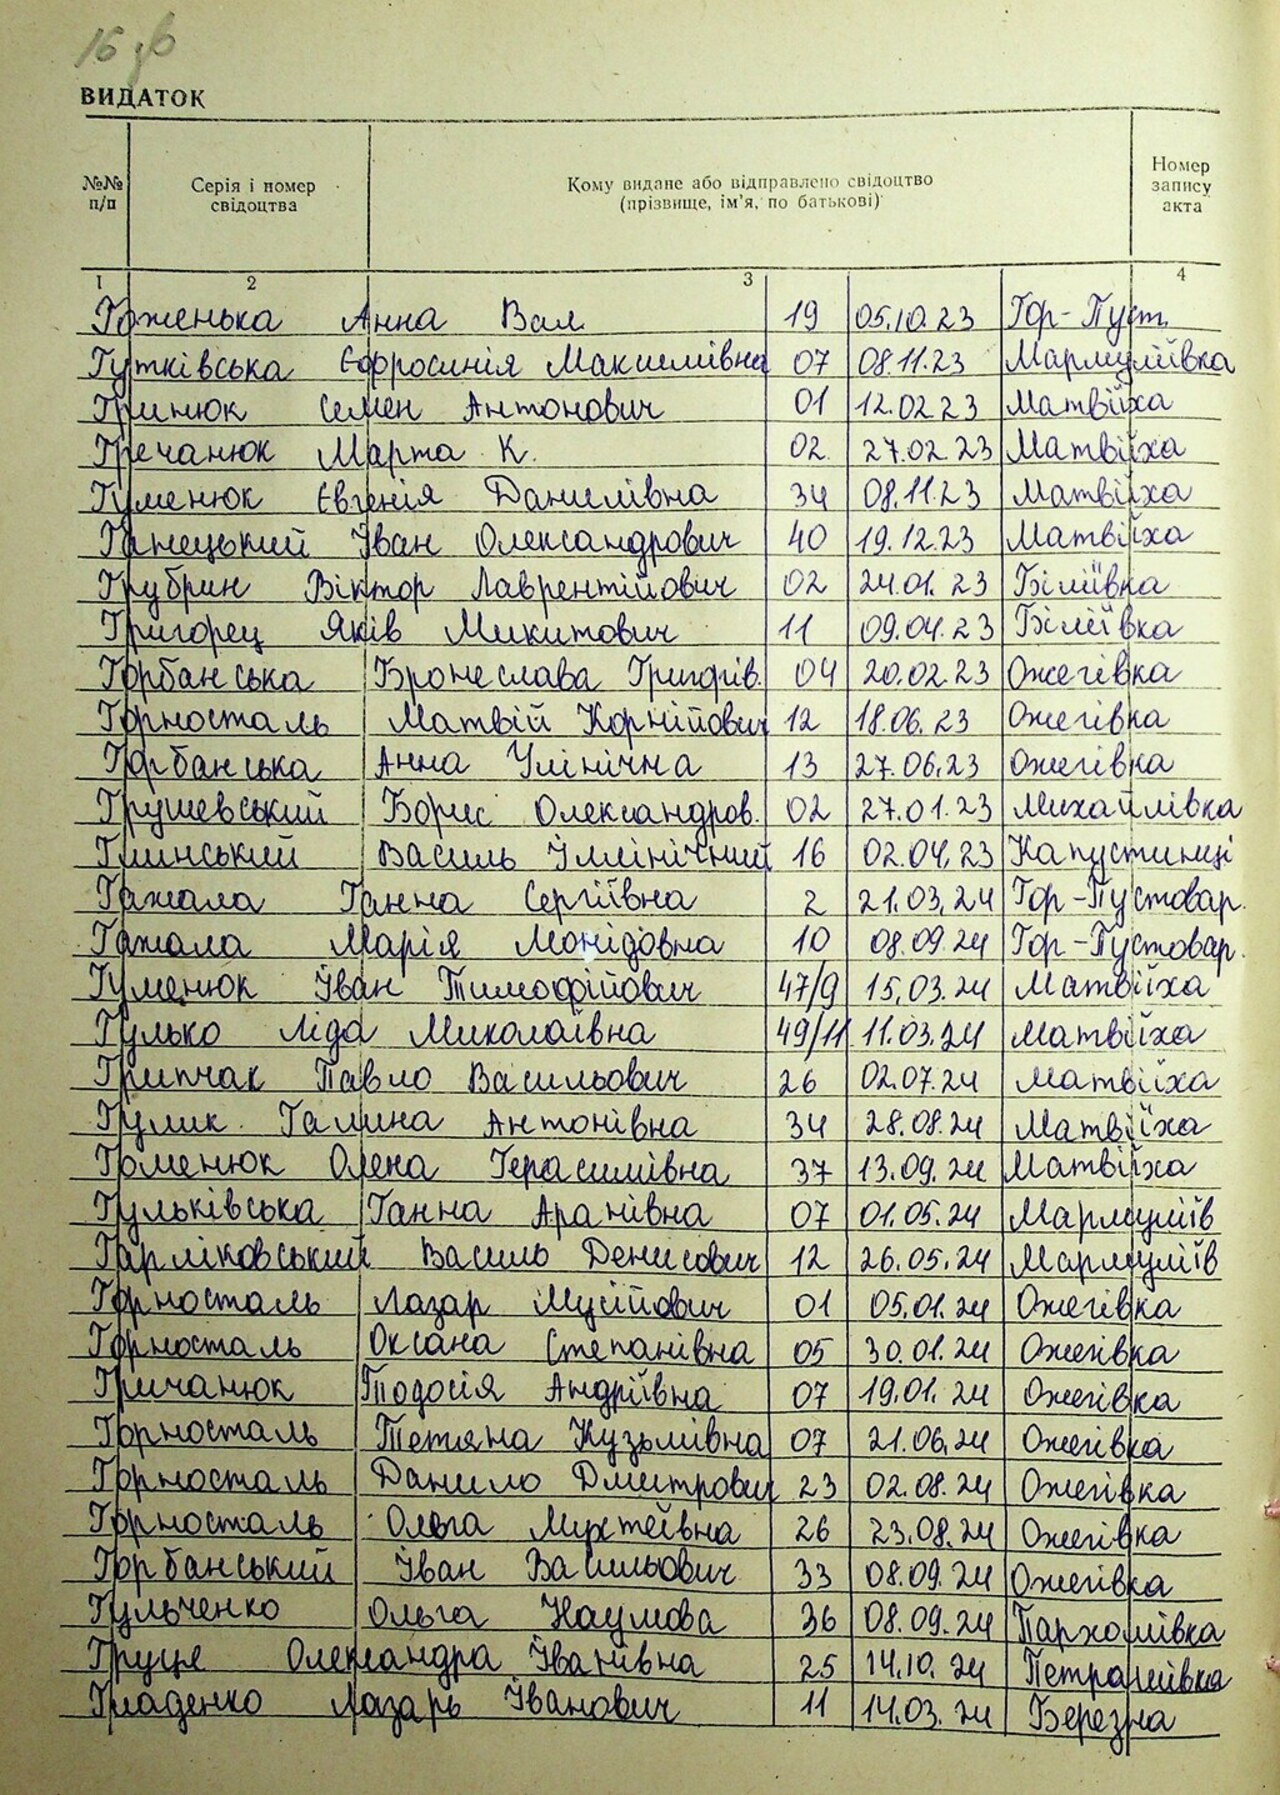 16 зв
ВИДАТОК
№№ п/п Серія і номер свідоцтва Кому видане або відправлено свідоцтво (прізвище, ім'я, по батькові) Номер запису акта
1 2 3 4
Гоженька Анна Вал. 19 05.10.23 Гор-Пуст.
Гутківська Єфросинія Максимівна 07 08.11.23 Мармуліївка
Гринюк Семен Антонович 01 12.02.23 Матвіїха
Гречанюк Марта К. 02. 27.02.23 Матвіїха
Гуменюк Євгенія Данилівна 34 08.11.23 Матвіїха
Ганецький Іван Олександрович 40 19.12.23 Матвіїха
Грубрин Віктор Лаврентійович 02 24.01.23 Біліївка
Григорец Яків Микитович 11 09.04.23 Біліївка
Горбанська Бронеслава Григорів. 04 20.02.23 Ожегівка
Горносталь Матвій Корнійович 12 18.06.23 Ожегівка
Горбанська Анна Улінічна 13 27.06.23 Ожегівка
Грушевський Борис Олександров. 02 27.01.23 Михайлівка
Глинський Василь Іллінічний 16 02.04.23 Капустинці
Гажала Ганна Сергіївна 2 21.03.24 Гор-Пустовар.
Гажала Марія 10 08.09.24 Гор-Пустовар.
Гуменюк Іван Тимофійович 47/9 15.03.24 Матвіїха
Гулько Ліда Миколаївна 49/11 11.03.24 Матвіїха
Грипчак Павло Васильович 26 02.07.24 Матвіїха
Гулик Галина Антонівна 34 28.08.24 Матвіїха
Гоменюк Олена Герасимівна 37 13.09.24 Матвіїха
Гульківська Ганна Аранівна 07 01.05.24 Мармуліїв
Гарліковський Василь Денисович 12 26.05.24 Мармуліїв
Горносталь Лазар Мусійович 01 05.01.24 Ожегівка
Горносталь Оксана Степанівна 05 30.01.24 Ожегівка
Гричанюк Тодосія Андріївна 07 19.01.24 Ожегівка
Горносталь Тетяна Кузьмівна 07 21.06.24 Ожегівка
Горносталь Данило Дмитрович 23 02.08.24 Ожегівка
Горносталь Ольга Мухтеївна 26 23.08.24 Ожегівка
Горбанський Іван Васильович 33 08.09.24 Ожегівка
Гульченко Ольга Наумова 36 08.09.24 Пархомівка
Груце Олександра Іванівна 25 14.10.24 Петрашівка
Гладенко Лазарь Іванович 11 14.03.24 Березна